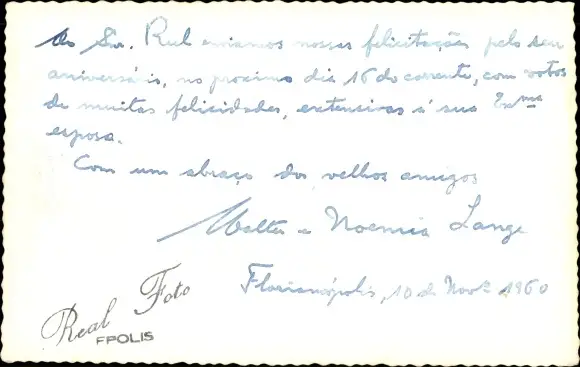 Ao Snr. Rul enviamos nossas felicitações pelo seu
aniversário, no proximo dia 16 do corrente, com votos
de muitas felicidades, extensivas á sua Exma
esposa.
Com um abraço dos velhos amigos
Walter e Noemia Lange
Florianópolis, 10 de Novº 1960
Real Foto
FPOLIS